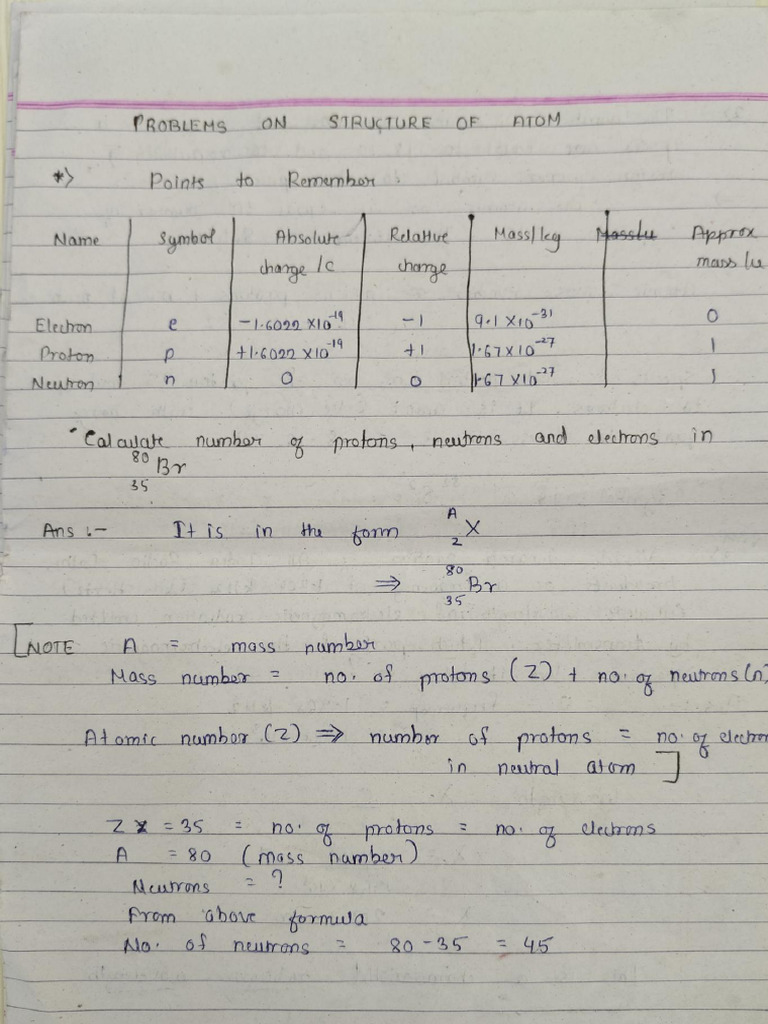 PROBLEMS ON STRUCTURE OF ATOM
*> Points to Remember.
Name Symbol Absolute charge /C Relative charge Mass/kg Mass/u Approx mass /u
Electron e -1.6022 ×10⁻¹⁹ -1 9.1 ×10⁻³¹ 0
Proton p +1.6022 ×10⁻¹⁹ +1 1.67×10⁻²⁷ 1
Neutron n 0 0 1.67 ×10⁻²⁷ 1
Calculate number of protons, neutrons and electrons in
⁸⁰₃₅Br
Ans :- It is in the form ᴬ_Z X
⇒ ⁸⁰₃₅Br
[NOTE A = mass number
Mass number = no. of protons (Z) + no. of neutrons (n)
Atomic number (Z) ⇒ number of protons = no. of electron
in neutral atom ]
Z = 35 = no. of protons = no. of electrons
A = 80 (mass number)
Neutrons = ?
From above formula
No. of neutrons = 80 - 35 = 45